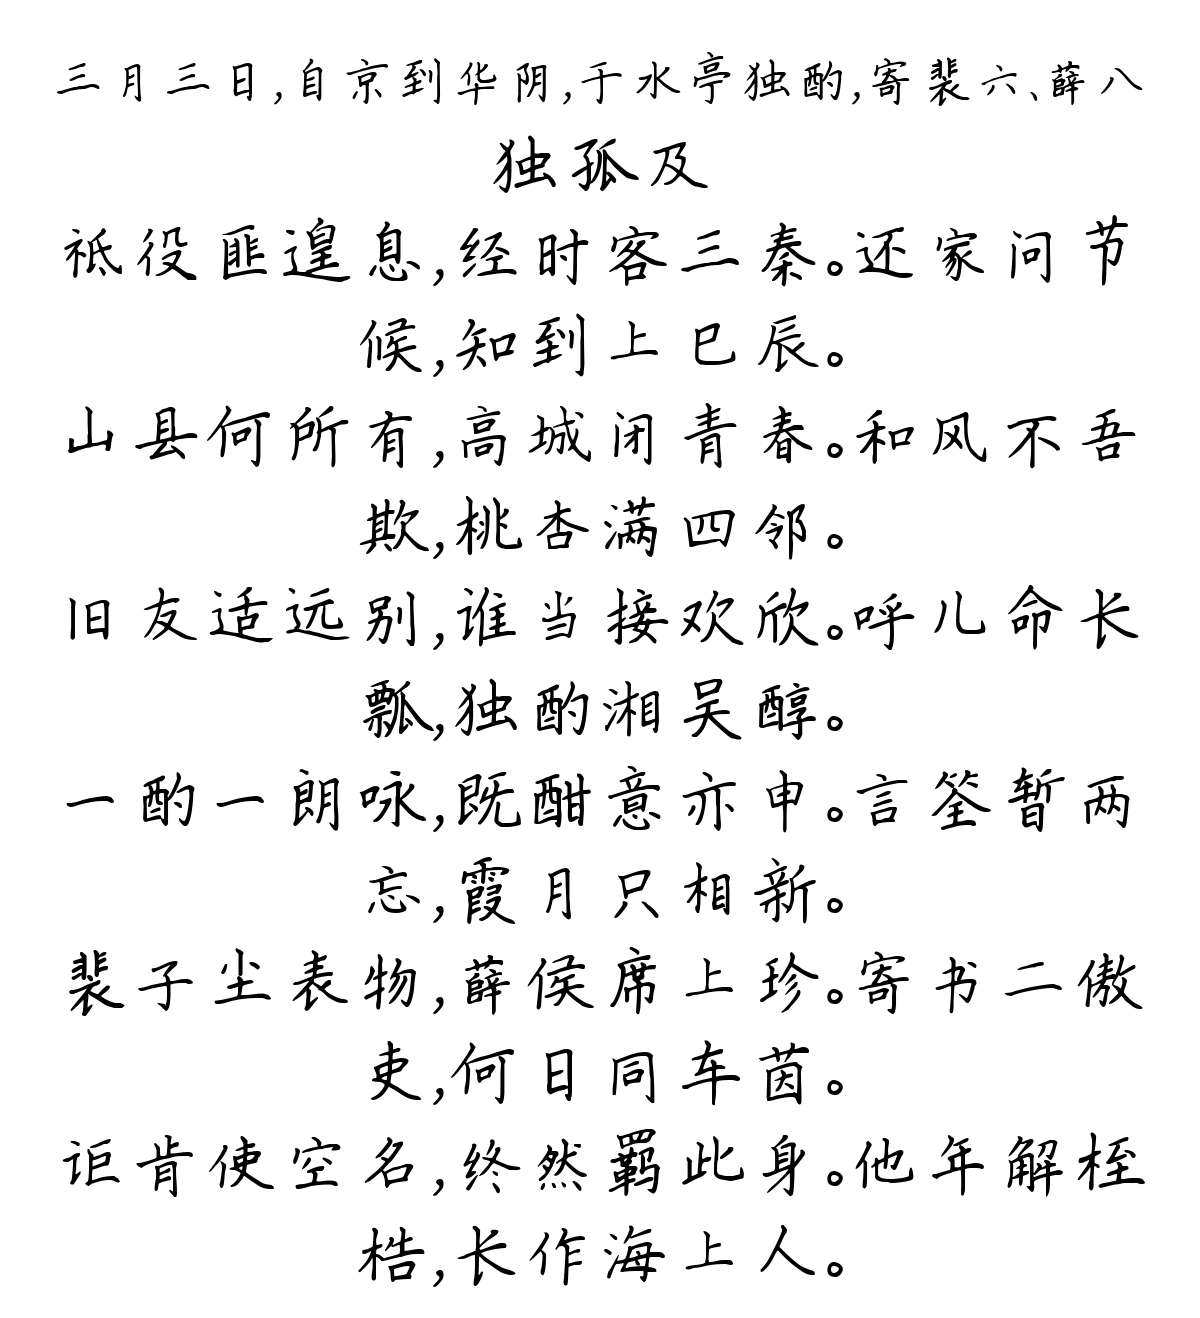 三月三日,自京到华阴,于水亭独酌,寄裴六、薛八
独孤及
祗役匪遑息,经时客三秦。还家问节
候,知到上巳辰。
山县何所有,高城闭青春。和风不吾
欺,桃杏满四邻。
旧友适远别,谁当接欢欣。呼儿命长
瓢,独酌湘吴醇。
一酌一朗咏,既酣意亦申。言筌暂两
忘,霞月只相新。
裴子尘表物,薛侯席上珍。寄书二傲
吏,何日同车茵。
讵肯使空名,终然羁此身。他年解桎
梏,长作海上人。